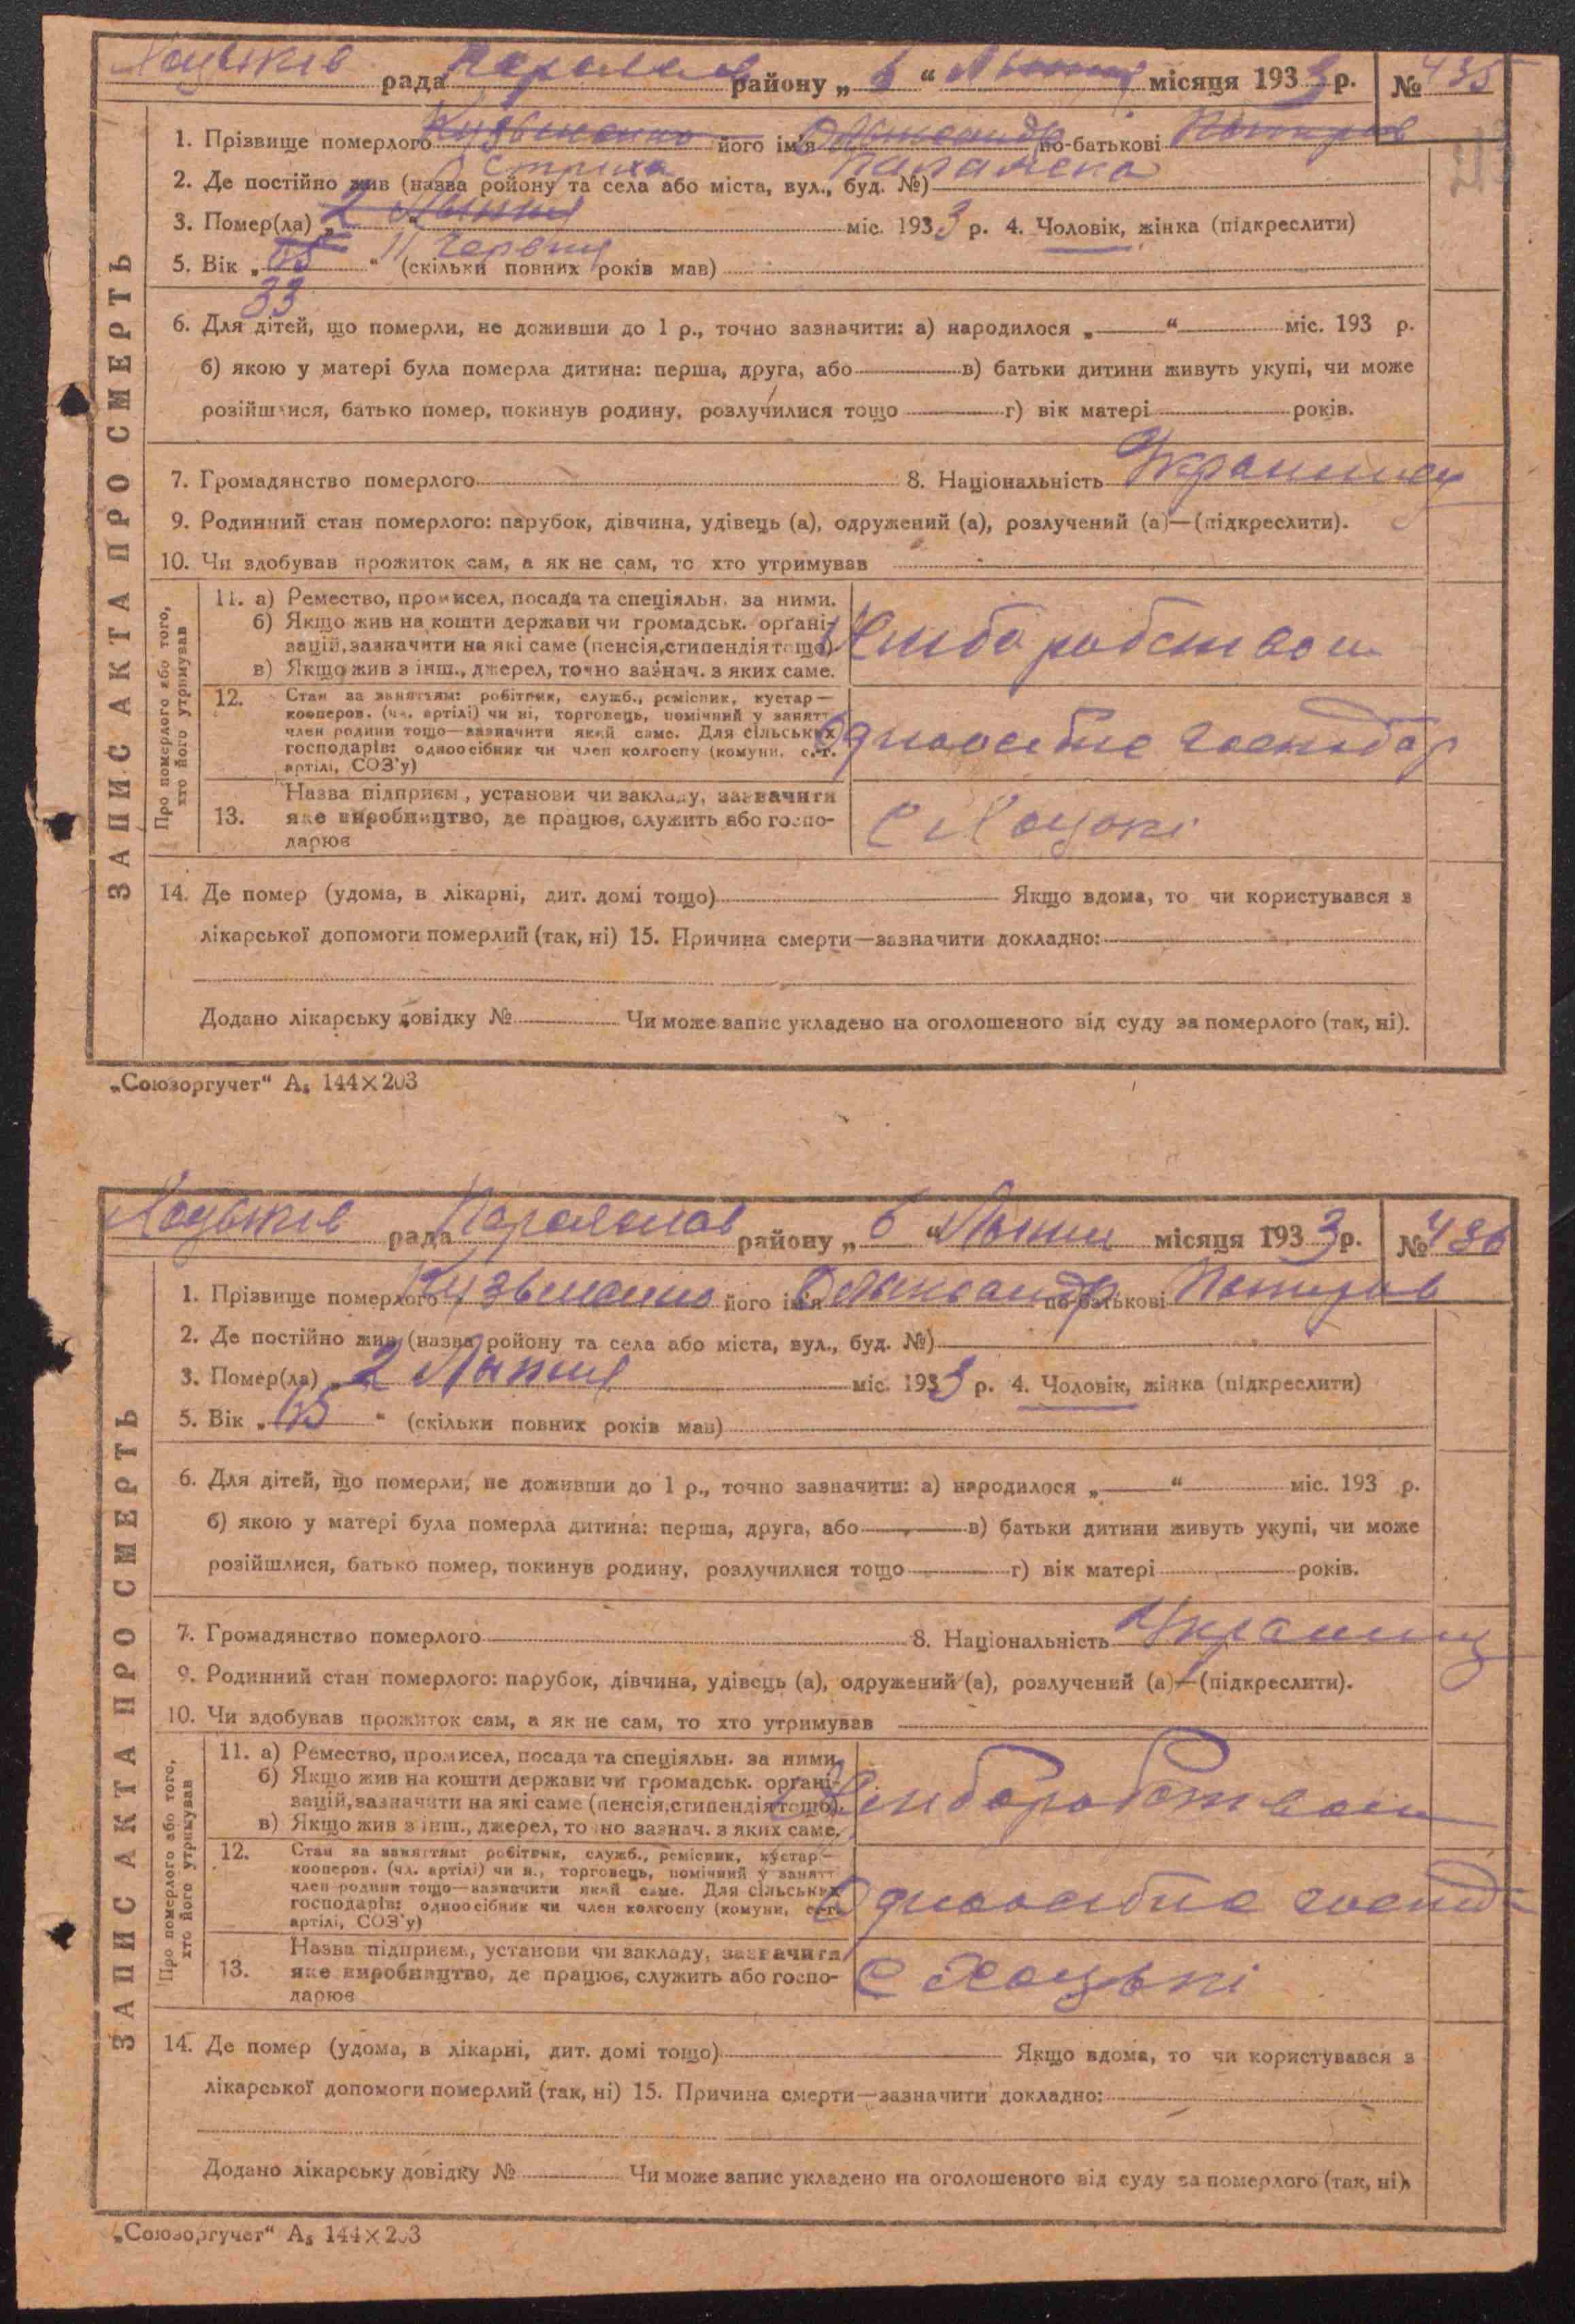 Хоцьків рада район у „ 6 “ Липня місяця 1933 р. № 435
1. Прізвище померлого Кузьменко його ім'я Олександр по-батькові Петров
Стриха Панамена
2. Де постійно жив (назва ройону та села або міста, вул., буд. №)
3. Помер(ла) „ 2 Липня міс. 1933 р. 4. Чоловік, жінка (підкреслити)
11 Червня
5. Вік „ 65 “ (скільки повних років мав)
33
6. Для дітей, що померли, не доживши до 1 р., точно зазначити: а) народилося „ “ міс. 193 р.
б) якою у матері була померла дитина: перша, друга, або в) батьки дитини живуть укупі, чи може
розійшлися, батько помер, покинув родину, розлучилися тощо г) вік матері років.
7. Громадянство померлого 8. Національність Українець
9. Родинний стан померлого: парубок, дівчина, удівець (а), одружений (а), розлучений (а)—(підкреслити).
10. Чи здобував прожиток сам, а як не сам, то хто утримував
ЗАПИС АКТА ПРО СМЕРТЬ
Про померлого або того,
хто його утримував
11. а) Ремество, промисел, посада та спеціяльн. за ними.
б) Якщо жив на кошти держави чи громадськ. органі-
зацій, зазначити на які саме (пенсія, стипендія тощо).
в) Якщо жив з інш., джерел, точно зазнач. з яких саме.
Хліборобством
12. Стан за заняттям: робітник, служб., ремісник, кустар—
кооперов. (чл. артілі) чи ні, торговець, помічний у занятт
член родини тощо—зазначити який саме. Для сільських
господарів: одноосібник чи член колгоспу (комуни, с.-г.
артілі, СОЗ'у)
Одноосібне господар
13. Назва підприєм., установи чи закладу, зазначити
яке виробництво, де працює, служить або госпо-
дарює
С Хоцькі
14. Де помер (удома, в лікарні, дит. домі тощо) Якщо вдома, то чи користувався з
лікарської допомоги померлий (так, ні) 15. Причина смерти—зазначити докладно:
Додано лікарську довідку № Чи може запис укладено на оголошеного від суду за померлого (так, ні).
„Союзоргучет“ А₅ 144×203
Хоцьків рада району „ 6 “ Липня місяця 1933 р. № 436
1. Прізвище померлого Кузьменко його ім'я Олександр по-батькові Петров
2. Де постійно жив (назва ройону та села або міста, вул., буд. №)
3. Помер(ла) „ 2 Липня міс. 1933 р. 4. Чоловік, жінка (підкреслити)
5. Вік „ 65 “ (скільки повних років мав)
6. Для дітей, що померли, не доживши до 1 р., точно зазначити: а) народилося „ “ міс. 193 р.
б) якою у матері була померла дитина: перша, друга, або в) батьки дитини живуть укупі, чи може
розійшлися, батько помер, покинув родину, розлучилися тощо г) вік матері років.
7. Громадянство померлого 8. Національність Українец
9. Родинний стан померлого: парубок, дівчина, удівець (а), одружений (а), розлучений (а)—(підкреслити).
10. Чи здобував прожиток сам, а як не сам, то хто утримував
ЗАПИС АКТА ПРО СМЕРТЬ
Про померлого або того,
хто його утримував
11. а) Ремество, промисел, посада та спеціяльн. за ними.
б) Якщо жив на кошти держави чи громадськ. органі-
зацій, зазначити на які саме (пенсія, стипендія тощо).
в) Якщо жив з інш., джерел, точно зазнач. з яких саме.
Хліборобством
12. Стан за заняттям: робітник, служб., ремісник, кустар—
кооперов. (чл. артілі) чи ні, торговець, помічний у занятт
член родини тощо—зазначити який саме. Для сільських
господарів: одноосібник чи член колгоспу (комуни, с.-г.
артілі, СОЗ'у)
Одноосібне господ
13. Назва підприєм., установи чи закладу, зазначити
яке виробництво, де працює, служить або госпо-
дарює
С Хоцькі
14. Де помер (удома, в лікарні, дит. домі тощо) Якщо вдома, то чи користувався з
лікарської допомоги померлий (так, ні) 15. Причина смерти—зазначити докладно:
Додано лікарську довідку № Чи може запис укладено на оголошеного від суду за померлого (так, ні).
„Союзоргучет“ А₅ 144×203